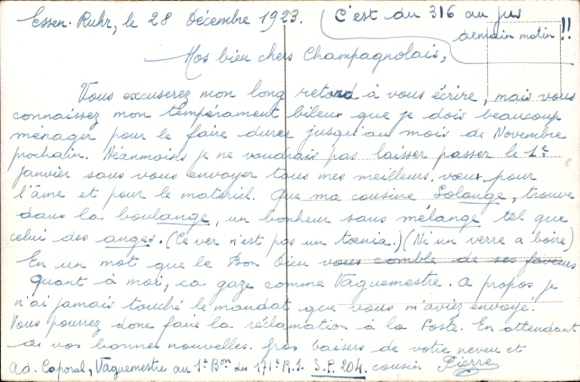 Essen. Ruhr, le 28 Décembre 1923.
C'est du 316 au jus
demain matin !!
Mes bien chers Champagnolais,
Vous excuserez mon long retard à vous écrire, mais vous
connaissez mon tempérament bileux que je dois beaucoup
ménager pour le faire durer jusqu'au mois de Novembre
prochain. Néanmoins je ne voudrais pas laisser passer le 1er
janvier sans vous envoyer tous mes meilleurs vœux pour
l'âme et pour le matériel. Que ma cousine Solange, trouve
dans la boulange, un bonheur sans mélange tel que
celui des anges. (Ce ver n'est pas un tœnia.) (Ni un verre à boire)
En un mot que le Bon Dieu vous comble de ses faveurs
Quant à moi, ça gaze comme Vaguemestre. A propos je
n'ai jamais touché le mandat que vous m'aviez envoyé.
Vous pourrez donc faire la réclamation à la Poste. En attendant
de vos bonnes nouvelles. Gros baisers de votre neveu et
Ad. Caporal, Vaguemestre au 1er Bon du 171e R.I. S.P. 204. cousin Pierre